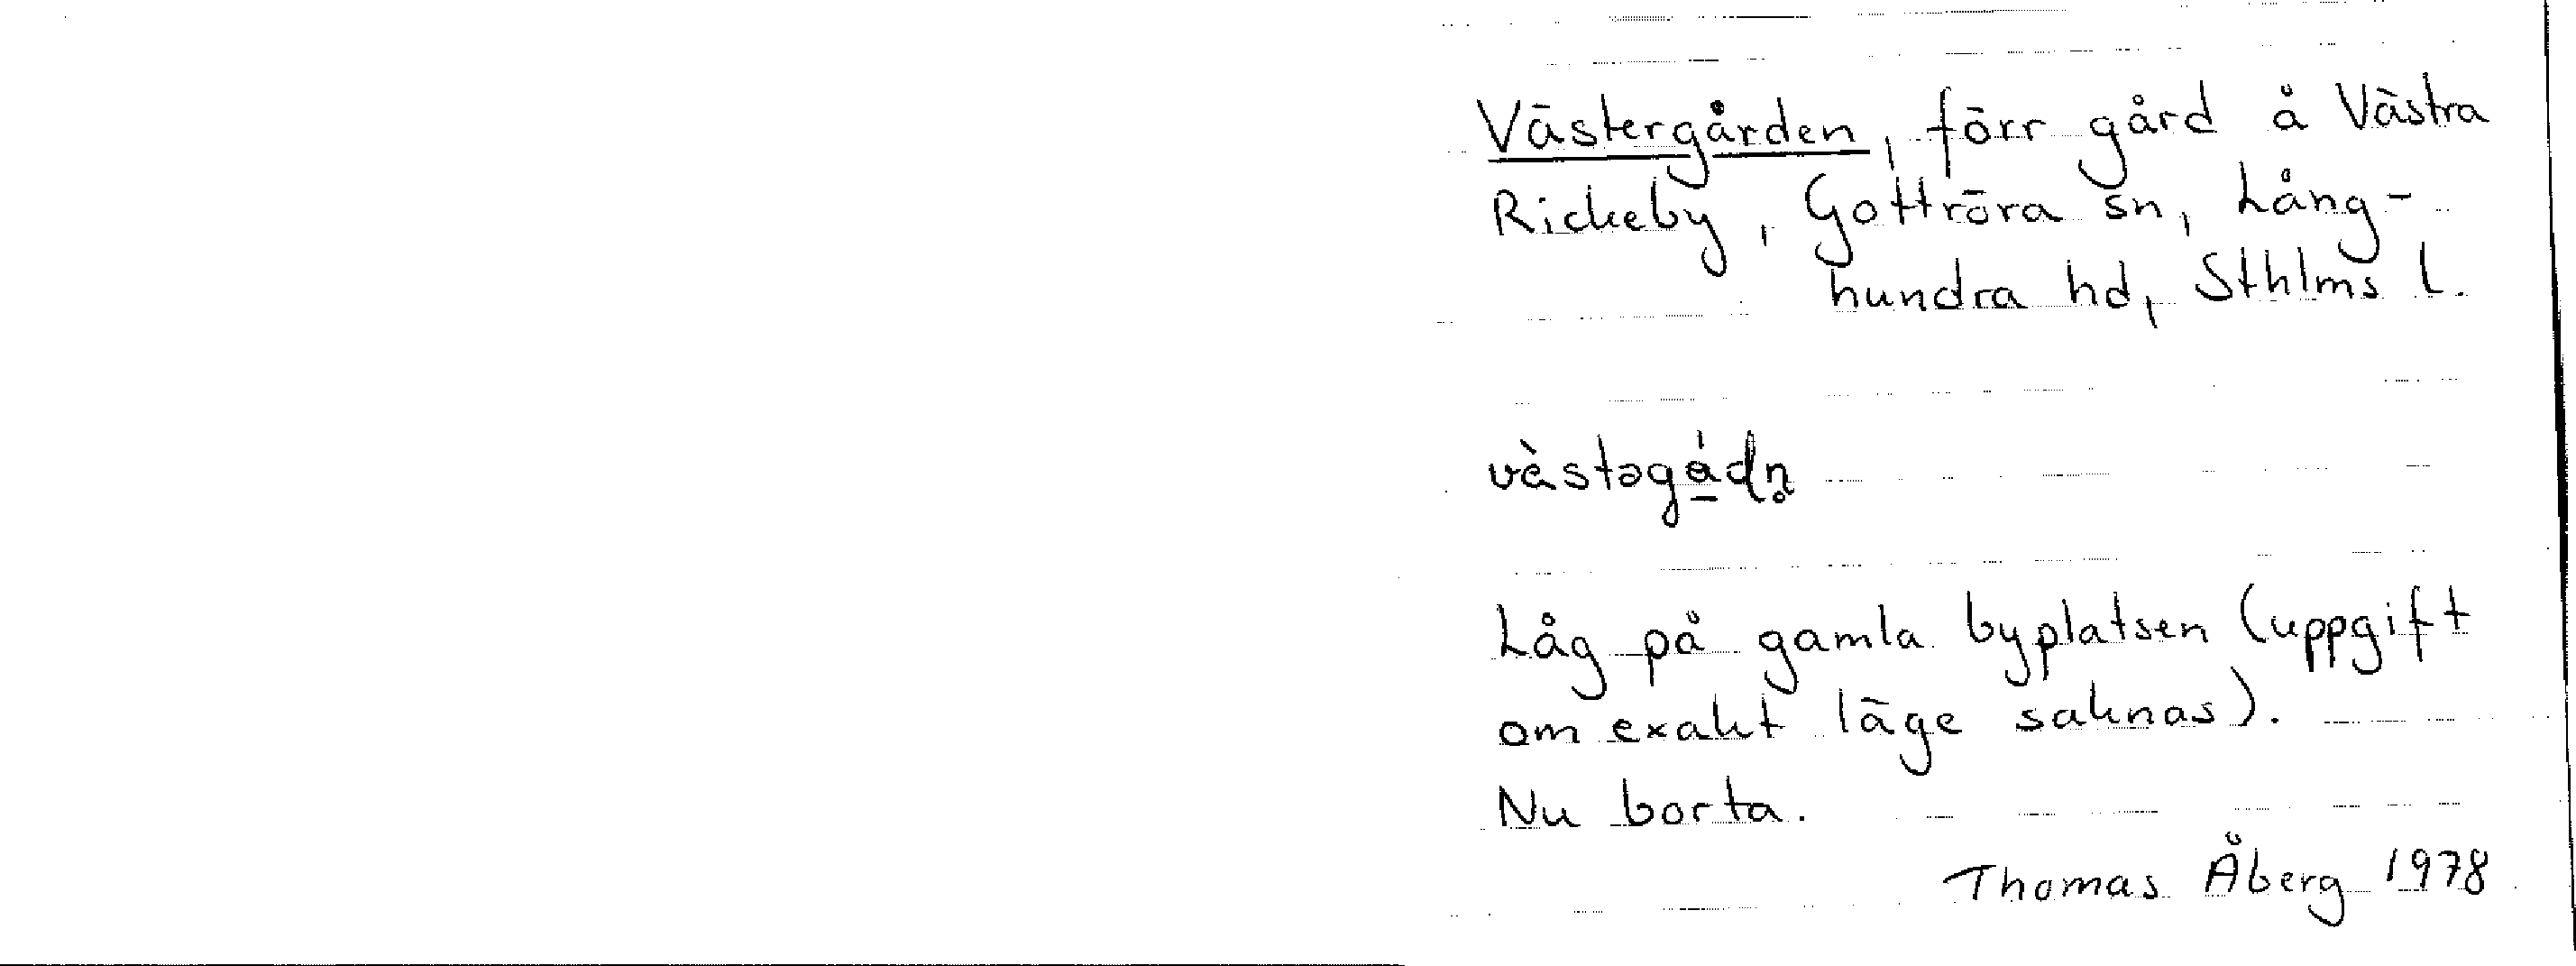 Västergården, förr gård å Västra
Rickeby, Gottröra sn, Lång-
hundra hd, Sthlms l.
västəgå̱dn̥
Låg på gamla byplatsen (uppgift
om exakt läge saknas).
Nu borta.
Thomas Åberg 1978